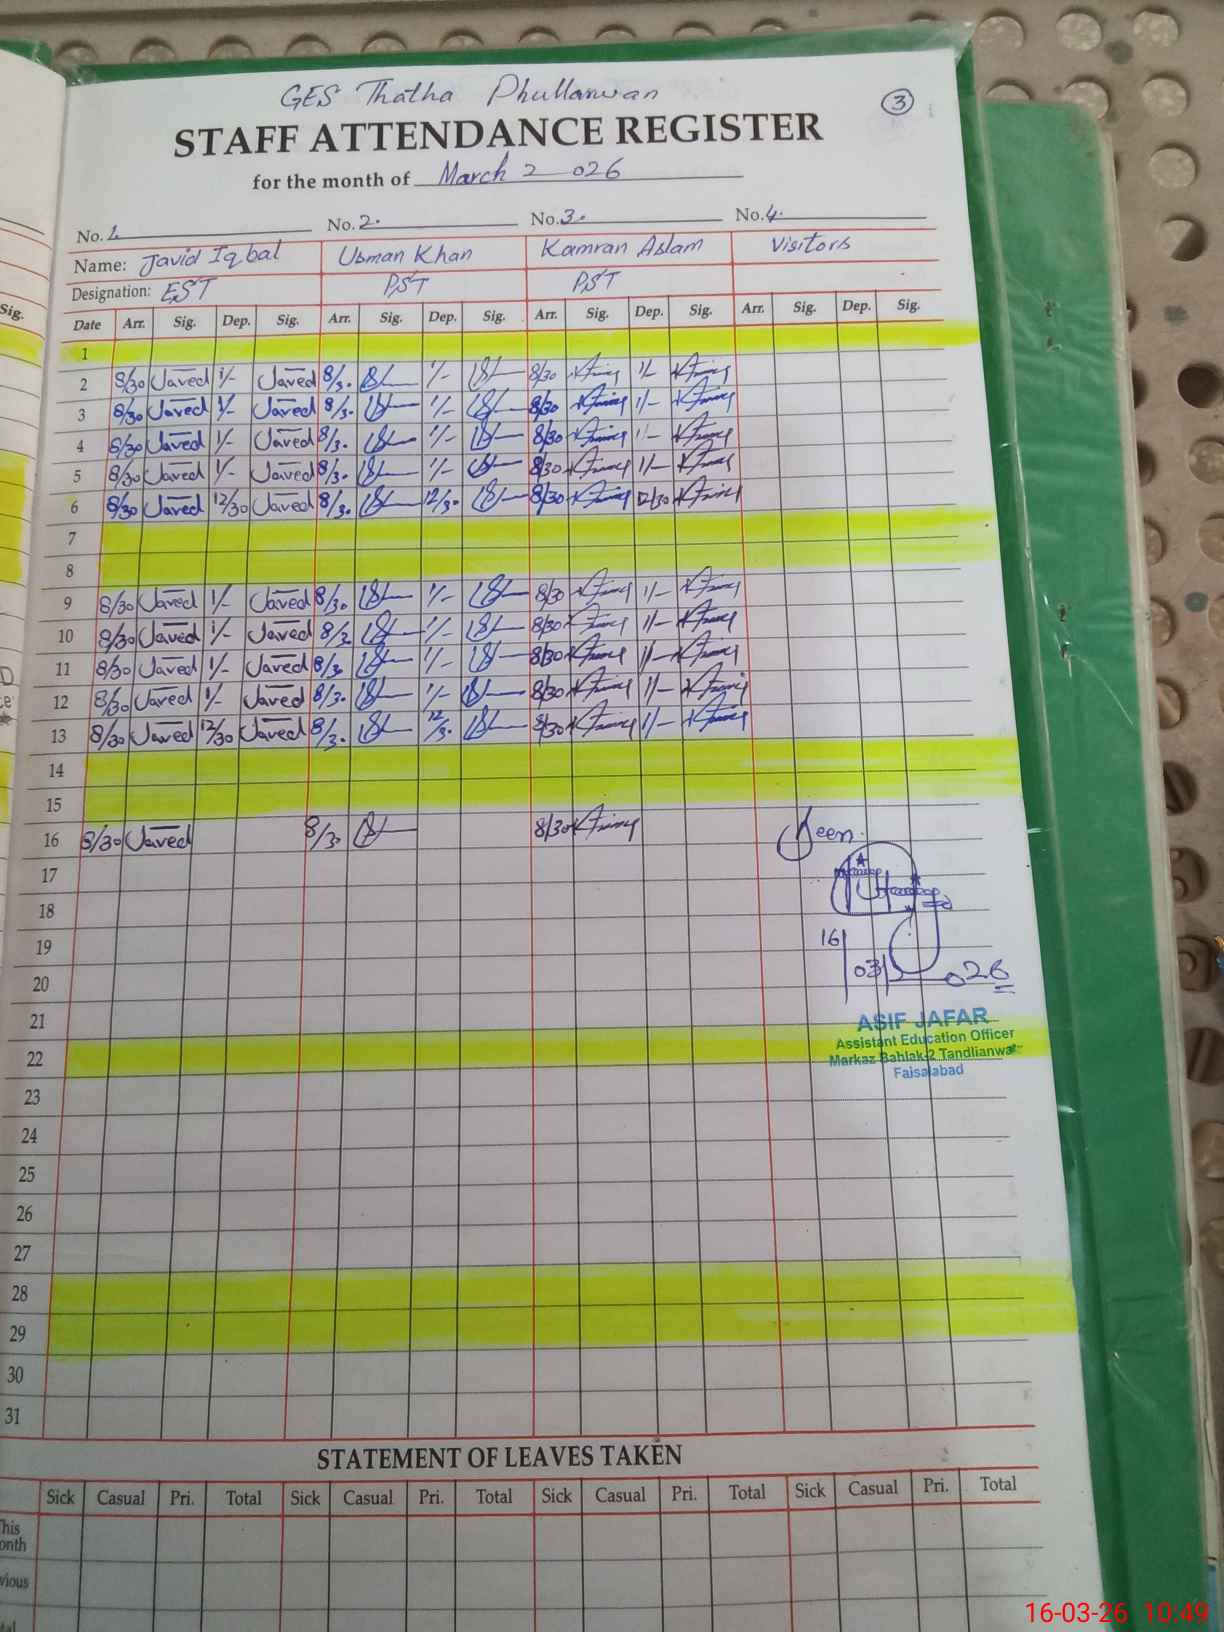 GES Thatha Phullanwan
3
STAFF ATTENDANCE REGISTER
for the month of March 2026
No. 1. No. 2. No. 3. No. 4.
Name: Javid Iqbal Usman Khan Kamran Aslam Visitors
Designation: EST PST PST
Date Arr. Sig. Dep. Sig. Arr. Sig. Dep. Sig. Arr. Sig. Dep. Sig. Arr. Sig. Dep. Sig.
Sig.
1
2 8/30 Javed 1/- Javed 8/30 1/- 8/30 1/-
3 8/30 Javed 1/- Javed 8/30 1/- 8/30 1/-
4 8/30 Javed 1/- Javed 8/30 1/- 8/30 1/-
5 8/30 Javed 1/- Javed 8/30 1/- 8/30 1/-
6 8/30 Javed 12/30 Javed 8/30 12/30 8/30 12/30
7
8
9 8/30 Javed 1/- Javed 8/30 1/- 8/30 1/-
10 8/30 Javed 1/- Javed 8/30 1/- 8/30 1/-
11 8/30 Javed 1/- Javed 8/30 1/- 8/30 1/-
12 8/30 Javed 1/- Javed 8/30 1/- 8/30 1/-
13 8/30 Javed 12/30 Javed 8/30 12/30 8/30 1/-
14
15
16 8/30 Javed 8/30 8/30 Seen.
17
18
19 16/03/026
20
21 ASIF JAFAR
Assistant Education Officer
22 Markaz Bahlak-2 Tandlianwala
Faisalabad
23
24
25
26
27
28
29
30
31
STATEMENT OF LEAVES TAKEN
Sick Casual Pri. Total Sick Casual Pri. Total Sick Casual Pri. Total Sick Casual Pri. Total
16-03-26 10:49